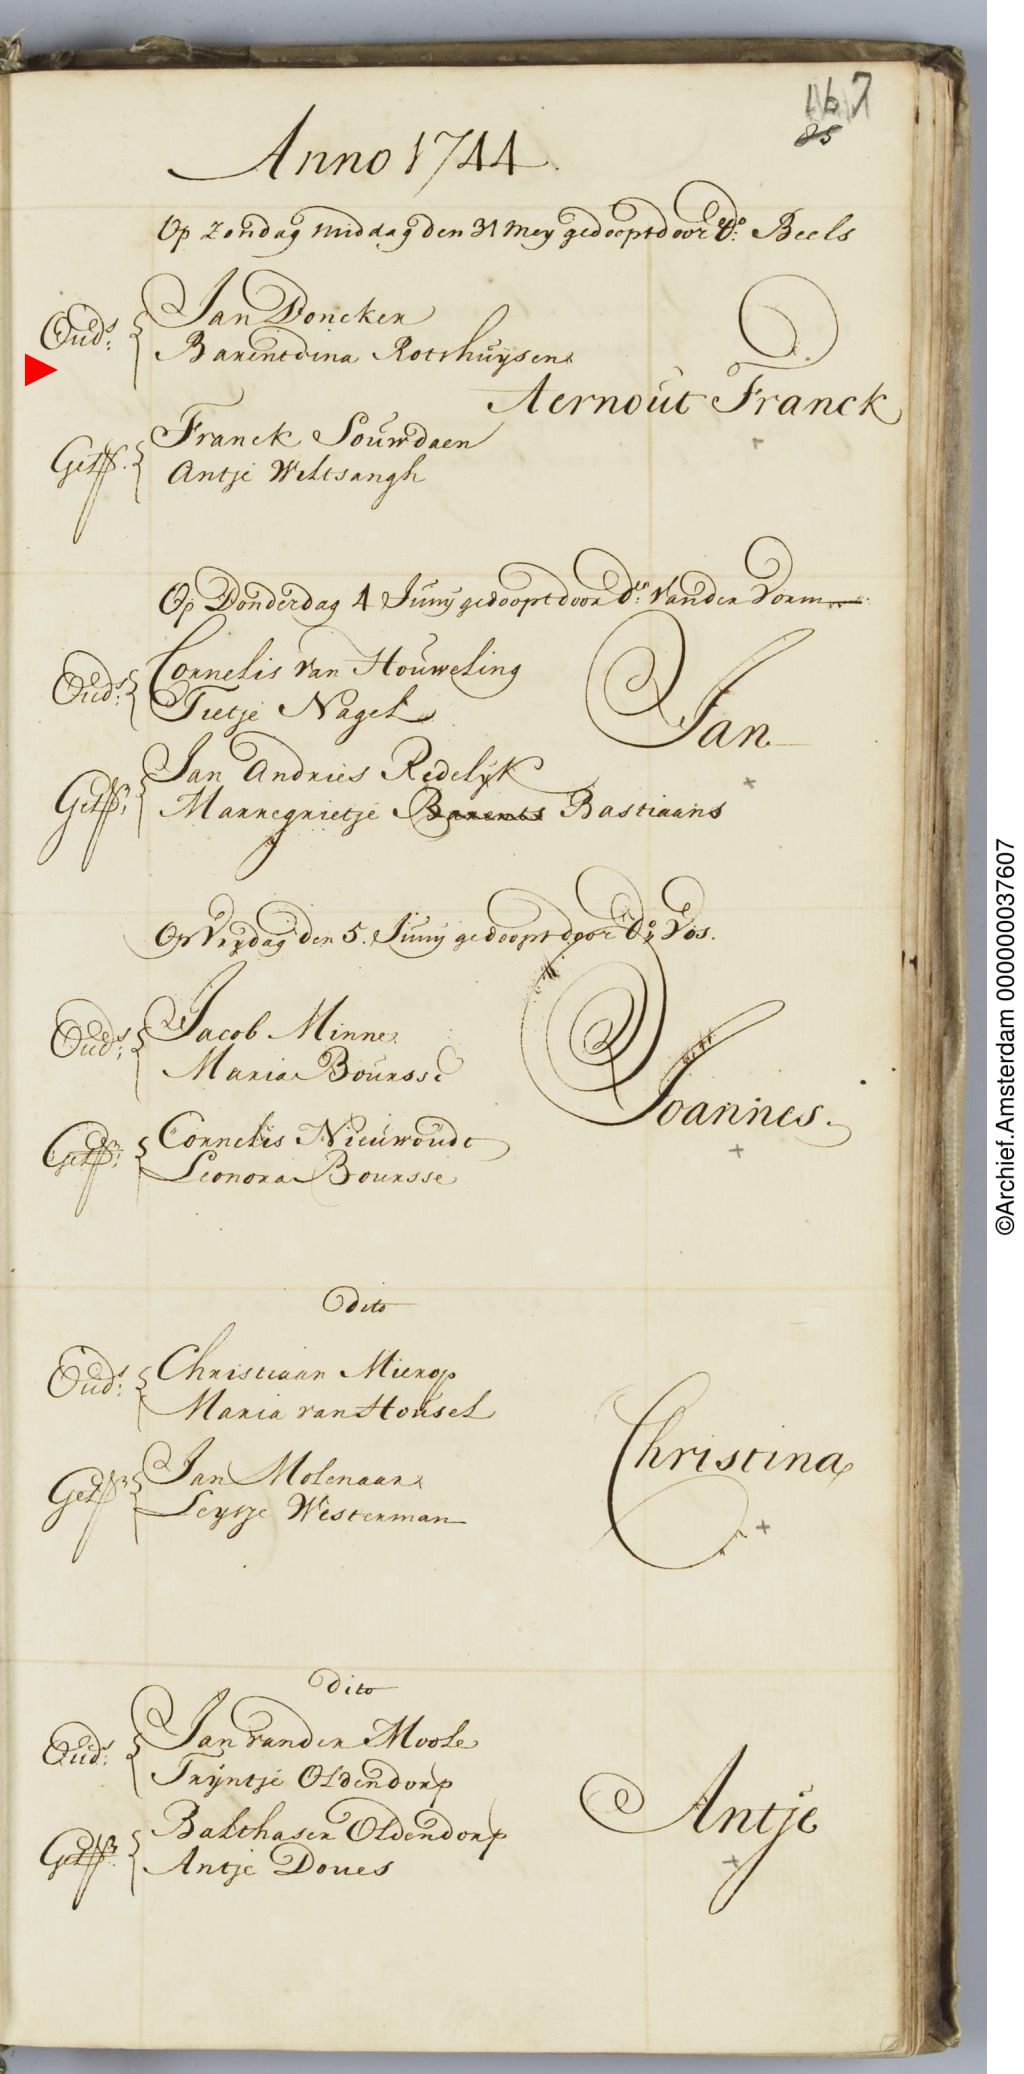 167
85
Anno 1744
Op Zondag middag den 31 Mey gedoopt door Do: Beels
Ouds: Jan Doncker
Barentdina Rotshuysens
Aernout Franck
Getß: Franck Souwdaen
Antje Weltsangh
Op Donderdag 4 Juny gedoopt door Ds: Van der Vorm
Ouds: Cornelis van Houweling
Tietje Nagel
Jan
Getß: Jan Andries Redelyk
Marregrietje Barents Bastiaans
Op Vrydag den 5. Juny gedoopt door Do: Vos.
Ouds: Jacob Minne
Maria Boursse
Joannes.
Getß: Cornelis Nieuwoudt
Leonora Boursse
dito
Ouds: Christiaan Mierop
Maria van Housel
Christina
Getß: Jan Molenaar
Leysje Westerman
dito
Ouds: Jan van der Moole
Tryntje Oldendorp
Antje
Getß: Balthaser Oldendorp
Antje Doues
©Archief.Amsterdam 000000037607